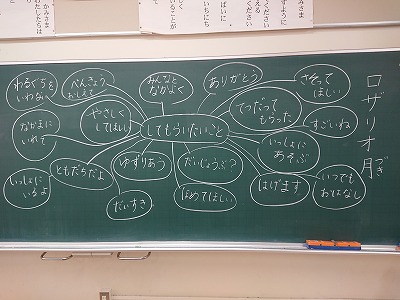 ロザリオ月
づき
してもらいたいこと
わるぐちを
いわない
べんきょう
おしえて
みんなと
なかよく
ありがとう
さそって
ほしい
なかまに
いれて
やさしく
してほしい
てつだって
もらった
すごいね
いっしょに
あそぶ
いっしょに
いるよ
ともだちだよ
ゆずりあう
だいじょうぶ?
はげます
いつでも
おはなし
だいすき
ほめてほしい